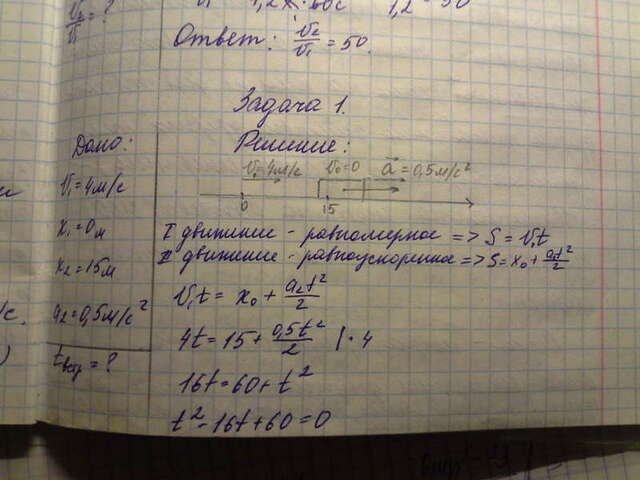 V₂/V₁ = ?
Ответ: V₂/V₁ = 50.
Задача 1.
Дано:
V₁ = 4м/с
x₁ = 0м
x₂ = 15м
a₂ = 0,5м/с²
tвстр = ?
Решение:
V₁=4м/с V₀=0 a⃗ = 0,5м/с²
0 15
I движение - равномерное => S = V₁t
II движение - равноускоренное => S = x₀ + a₂t²/2
V₁t = x₀ + a₂t²/2
4t = 15 + 0,5t²/2 | · 4
16t = 60 + t²
t² - 16t + 60 = 0